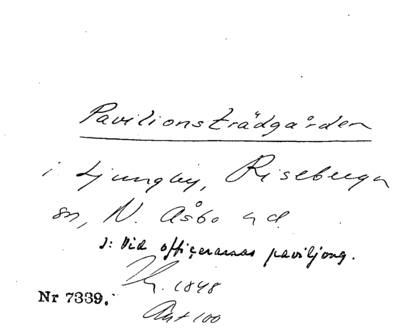 Paviljonsträdgården
i Ljungby, Riseberga
sn, N. Åsbo hd.
ɔ: Vid officerarnas paviljong.
1848
Nr 7339.
Ant 100